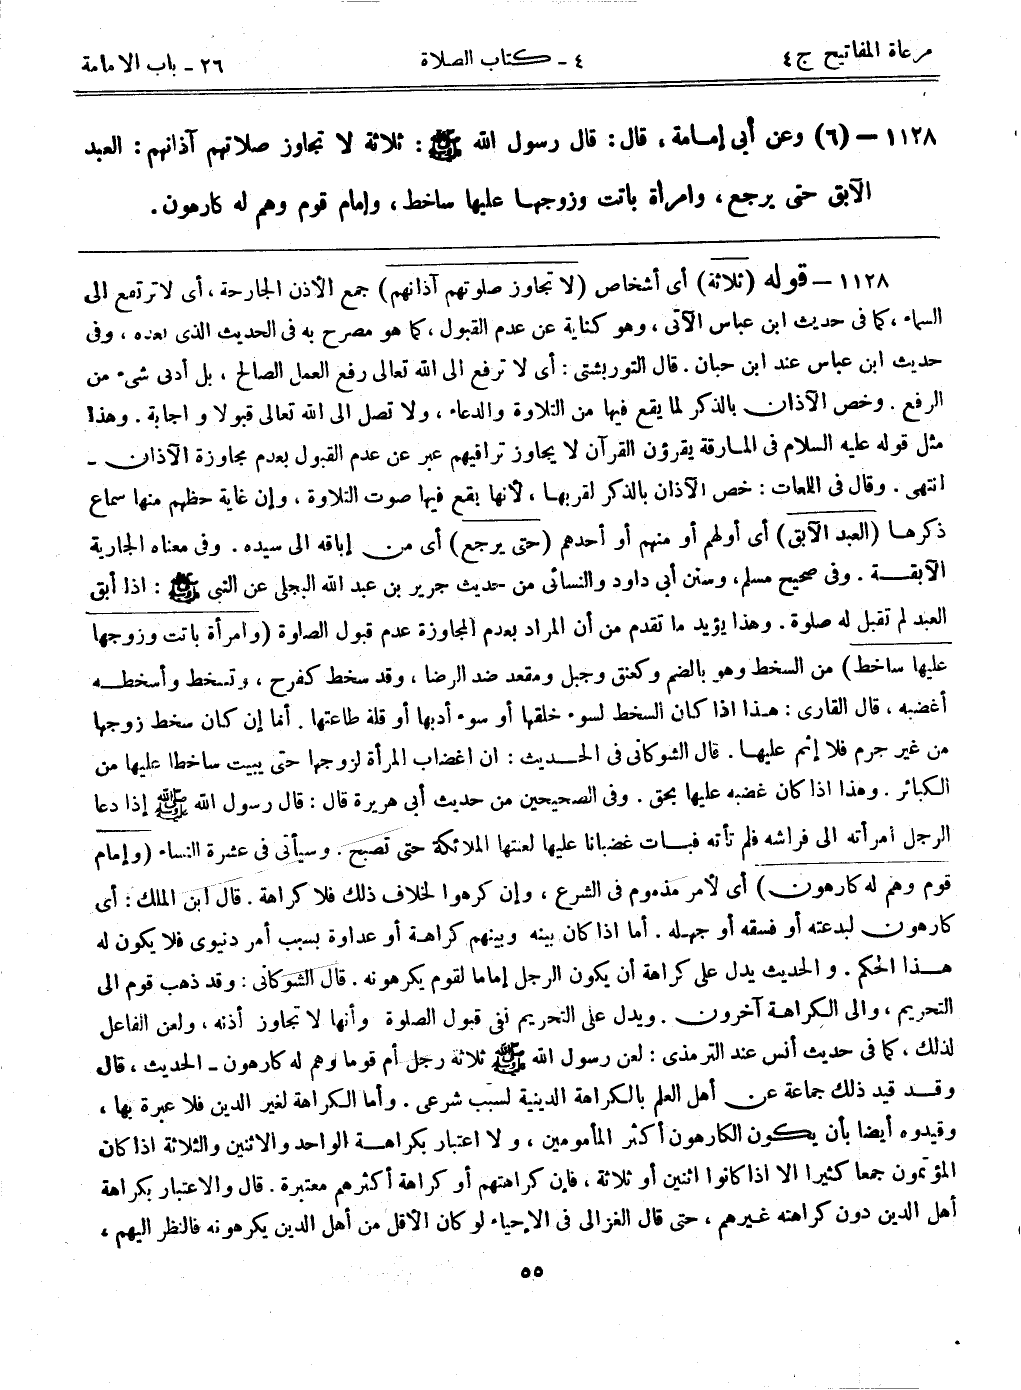 مرعاة المفاتيح ج٤ ٤ - كتاب الصلاة ٢٦ - باب الامامة
١١٢٨ – (٦) وعن أبى إمامة، قال: قال رسول الله ﷺ: ثلاثة لا تجاوز صلاتهم آذانهم: العبد
الآبق حتى يرجع، وامرأة باتت وزوجها عليها ساخط، وإمام قوم وهم له كارهون.
١١٢٨ – قوله (ثلاثة) أى أشخاص (لا تجاوز صلوتهم آذانهم) جمع الأذن الجارحة، أى لا ترتفع الى
السماء، كما فى حديث ابن عباس الآتى، وهو كناية عن عدم القبول، كما هو مصرح به فى الحديث الذى بعده، وفى
حديث ابن عباس عند ابن حبان. قال التوربشتى: أى لا ترفع الى الله تعالى رفع العمل الصالح، بل أدنى شىء من
الرفع. وخص الآذان بالذكر لما يقع فيها من التلاوة والدعاء، ولا تصل الى الله تعالى قبولا و اجابة. وهذا
مثل قوله عليه السلام فى المارقة يقرؤن القرآن لا يجاوز تراقيهم عبر عن عدم القبول بعدم مجاوزة الآذان -
انتهى. وقال فى اللعات: خص الآذان بالذكر لقربها، لأنها يقع فيها صوت التلاوة، وإن غاية حظهم منها سماع
ذكرها (العبد الآبق) أى أولهم أو منهم أو أحدهم (حتى يرجع) أى من إباقه الى سيده. وفى معناه الجارية
الآبقة. وفى صحيح مسلم، وسنن أبى داود والنسائى من حديث جرير بن عبد الله البجلى عن النبى ﷺ: اذا أبق
العبد لم تقبل له صلوة. وهذا يؤيد ما تقدم من أن المراد بعدم المجاوزة عدم قبول الصلوة (وامرأة باتت وزوجها
عليها ساخط) من السخط وهو بالضم وكعنق وجبل ومقعد ضد الرضا، وقد سخط كفرح، وتسخط وأسخطه
أغضبه، قال القارى: هذا اذا كان السخط لسوء خلقها أو سوء أدبها أو قلة طاعتها. أما إن كان سخط زوجها
من غير جرم فلا إثم عليها. قال الشوكانى فى الحديث: ان اغضاب المرأة لزوجها حتى يبيت ساخطا عليها من
الكبائر. وهذا اذا كان غضبه عليها بحق. وفى الصحيحين من حديث أبى هريرة قال: قال رسول الله ﷺ إذا دعا
الرجل امرأته الى فراشه فلم تأته فبات غضبانا عليها لعنتها الملائكة حتى تصبح. وسيأتى فى عشرة النساء (وإمام
قوم وهم له كارهون) أى لأمر مذموم فى الشرع، وإن كرهوا لخلاف ذلك فلا كراهة. قال ابن الملك: أى
كارهون لبدعته أو فسقه أو جهله. أما اذا كان بينه وبينهم كراهة أو عداوة بسبب أمر دنيوى فلا يكون له
هذا الحكم. و الحديث يدل على كراهة أن يكون الرجل إماما لقوم يكرهونه. قال الشوكانى: وقد ذهب قوم الى
التحريم، والى الكراهة آخرون. ويدل على التحريم نفى قبول الصلوة وأنها لا تجاوز أذنه، ولعن الفاعل
لذلك، كما فى حديث أنس عند الترمذى: لعن رسول الله ﷺ ثلاثة رجل أم قوما وهم له كارهون - الحديث، قال
وقد قيد ذلك جماعة عن أهل العلم بالكراهة الدينية لسبب شرعى. وأما الكراهة لغير الدين فلا عبرة بها،
وقيدوه أيضا بأن يكون الكارهون أكثر المأمومين، و لا اعتبار بكراهة الواحد والاثنين والثلاثة اذا كان
المؤتمون جمعا كثيرا الا اذا كانوا اثنين أو ثلاثة، فإن كراهتهم أو كراهة أكثرهم معتبرة. قال والاعتبار بكراهة
أهل الدين دون كراهته غيرهم، حتى قال الغزالى فى الإحياء لو كان الأقل من أهل الدين يكرهونه فالنظر اليهم،
٥٥